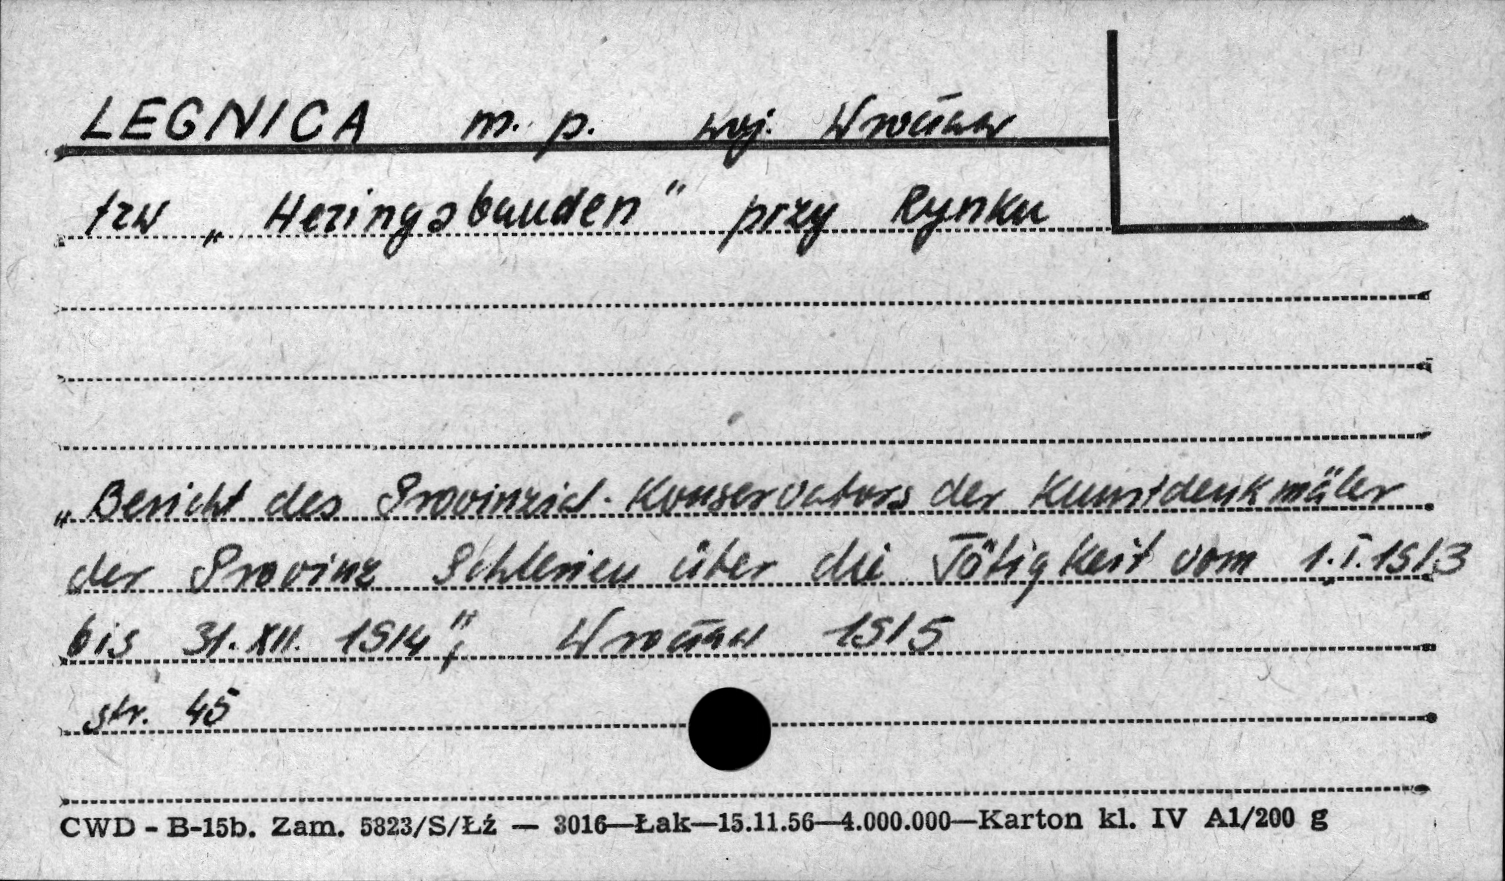 LEGNICA m. p. woj. Wrocław
tzw „Heringsbauden" przy Rynku
„Bericht des Provinzial-Konservators der Kunstdenkmäler
der Provinz Schlesien über die Tätigkeit vom 1.I.1913
bis 31.XII. 1914", Wrocław 1915
str. 45
CWD - B-15b. Zam. 5823/S/Łź — 3016—Łak—15.11.56—4.000.000—Karton kl. IV A1/200 g